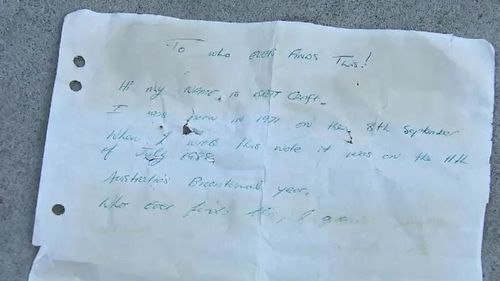 To who ever finds This!
Hi my NAME is BRETT Croft.
I was born in 1971 on the 8th September
When I wrote this note it was on the 11th
of July 1988.
Australia's Bicentennial year.
Who ever finds this, I